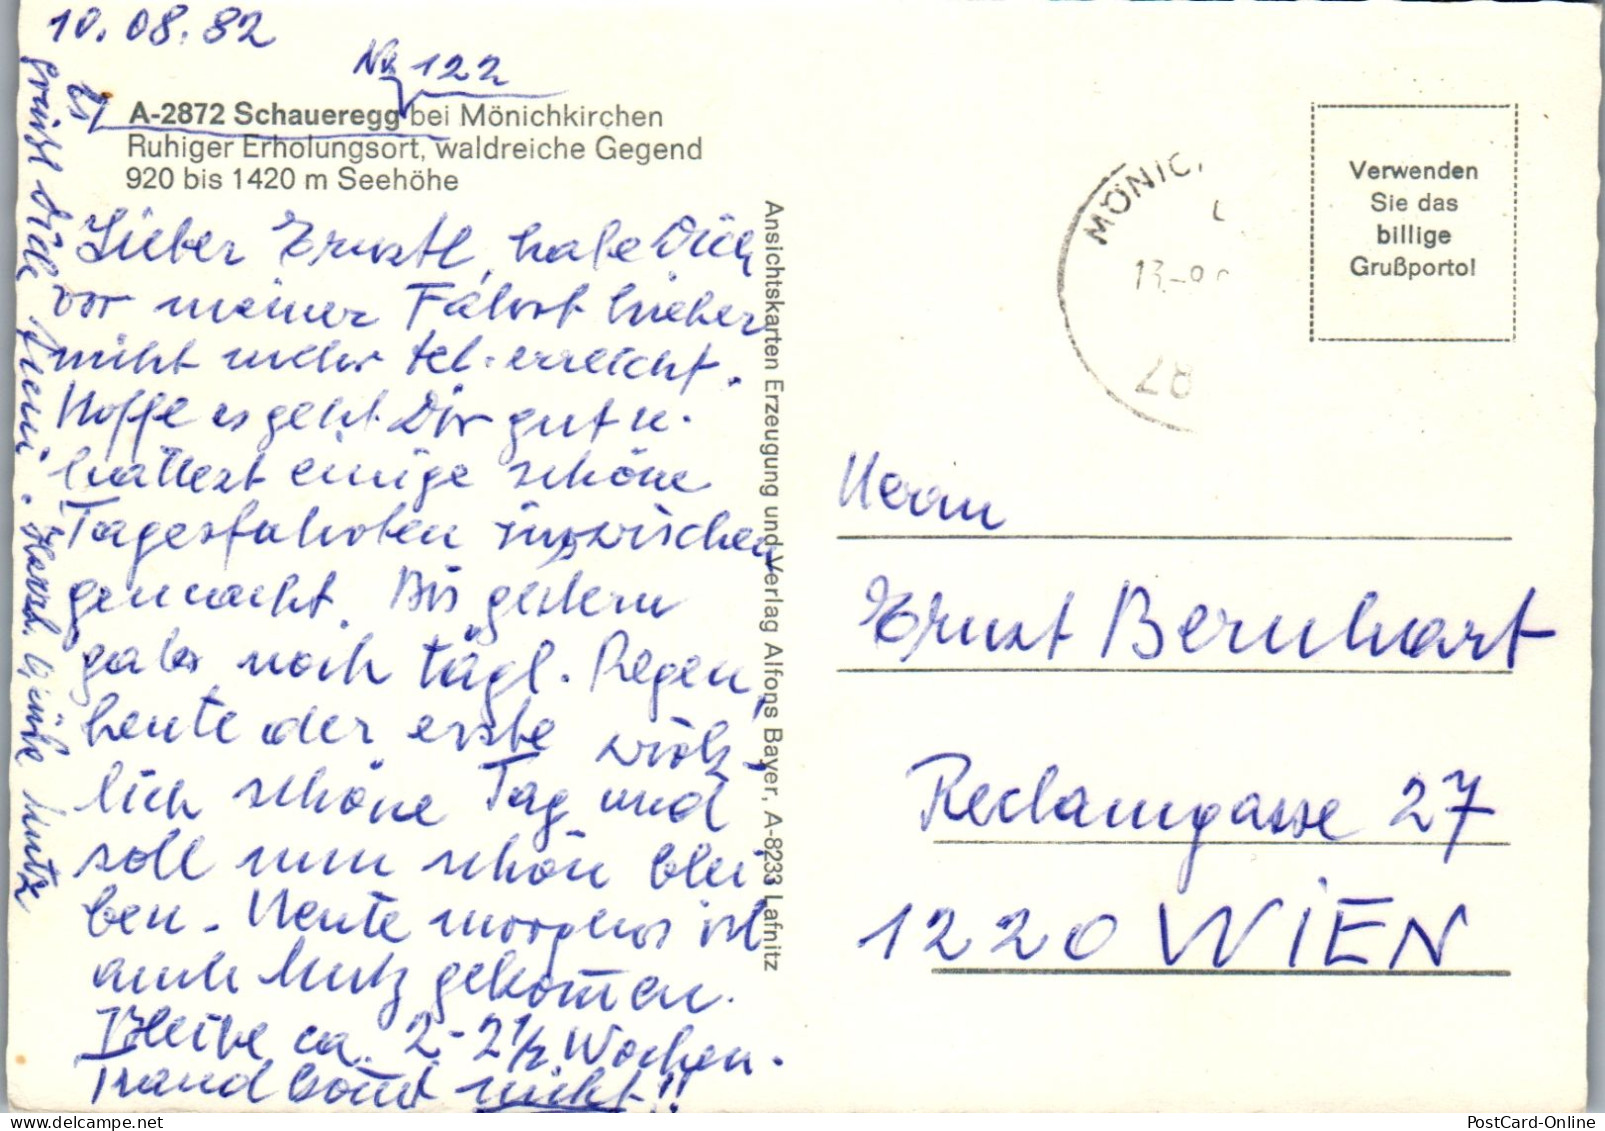 10.08.82
Nr 122
A-2872 Schaueregg bei Mönichkirchen
Ruhiger Erholungsort, waldreiche Gegend
920 bis 1420 m Seehöhe
Lieber Ernstl, habe Dich
vor meiner Fahrt hieher
nicht mehr tel. erreicht.
Hoffe es geht Dir gut u.
hattest einige schöne
Tagesfahrten inzwischen
gemacht. Bis gestern
gab es noch tägl. Regen,
heute der erste wirk-
lich schöne Tag und
soll nun schön blei-
ben. Heute morgens ist
auch Mutz gekommen.
Bleibe ca. 2-2½ Wochen.
Traud kommt nicht!!
Es
grüßt Dich Heini. Herzl. Grüße Mutz
Ansichtskarten Erzeugung und Verlag Alfons Bayer, A-8233 Lafnitz
MÖNIC
13.-8
28
Verwenden
Sie das
billige
Grußporto!
Herrn
Ernst Bernhart
Reclamgasse 27
1220 WIEN
PostCard-Online